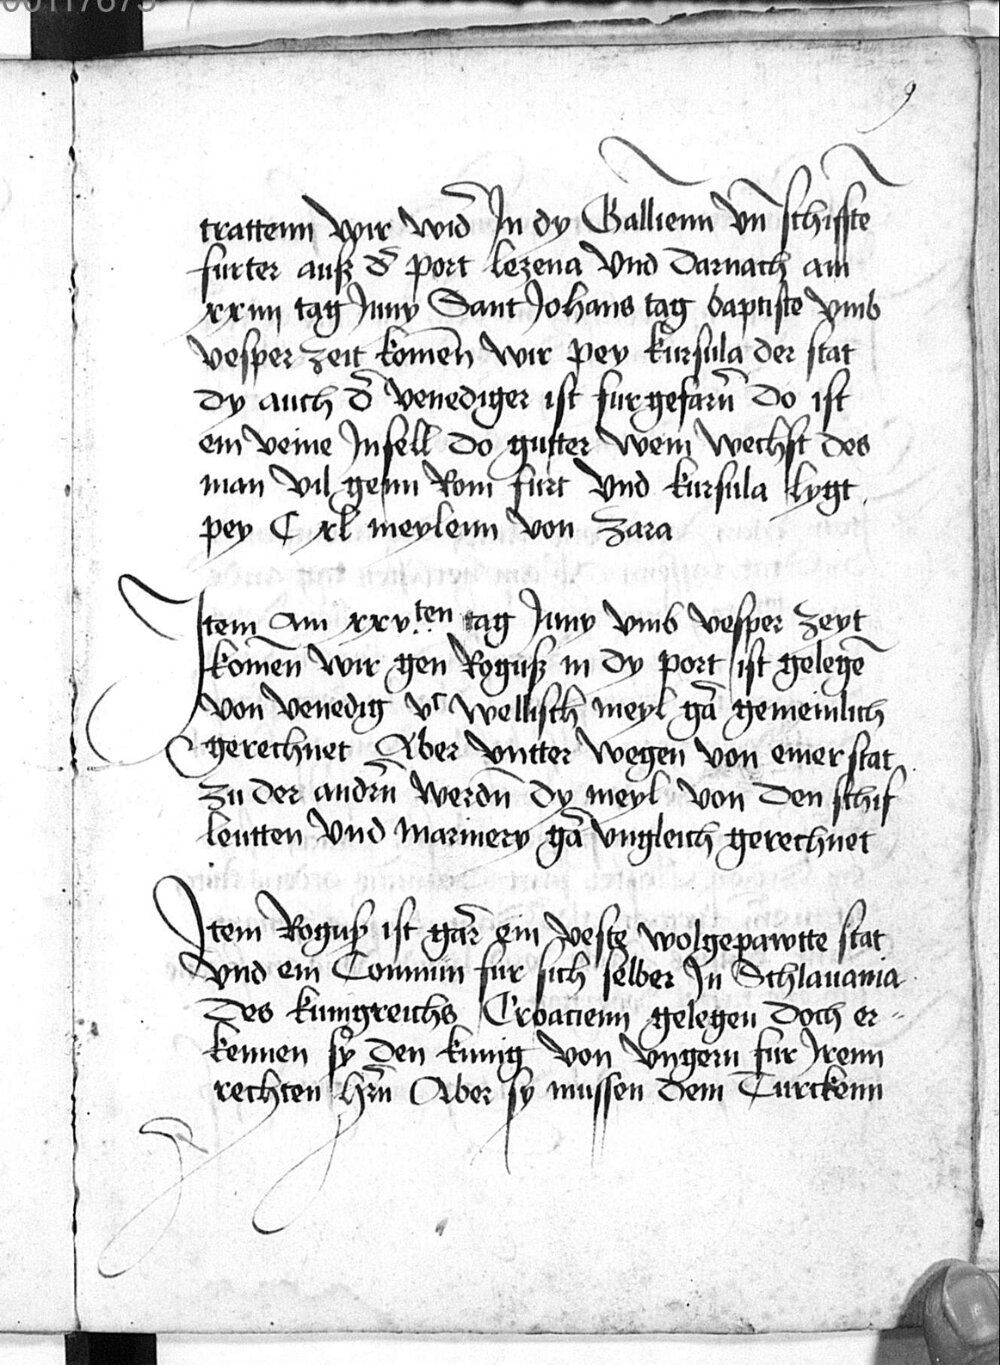 00117675
9
trattenn wir wid̄ In dy Gallienn vn̄ schiffte
furter auß d̄ port lezena vnd darnach am
xxiiij tag Juny Sant Johans tag baptiste vmb
vesper zeit komen̄ wir pey kursula der stat
dy auch d̄ venediger ist furgefarn̄ Do ist
ein veine Insell do gutter wein wechst des
man vil genn Rom furt vnd kursula lygt
pey C xl meylenn von Zara
Item Am xxv.ten tag Juny vmb vesper zeyt
komen̄ wir gen Roguß in dy port ist gelegē
von venedig vc wellisch meyl gā gemeinlich
gerechnet Aber vntter wegen von einer stat
zu der andrn̄ werdn̄ dy meyl von den schif
leutten vnd marinery gā vngleich gerechnet
Item Roguß ist gar̄ ein veste wolgepawtte stat
vnd ein Comun̄ fur sich selber In Schlauania
des kunigreichs Croacienn gelegen doch er-
kennen sy den kunig von vngern fur Irenn
rechten hrn̄ Aber sy mussen dem Turckenn